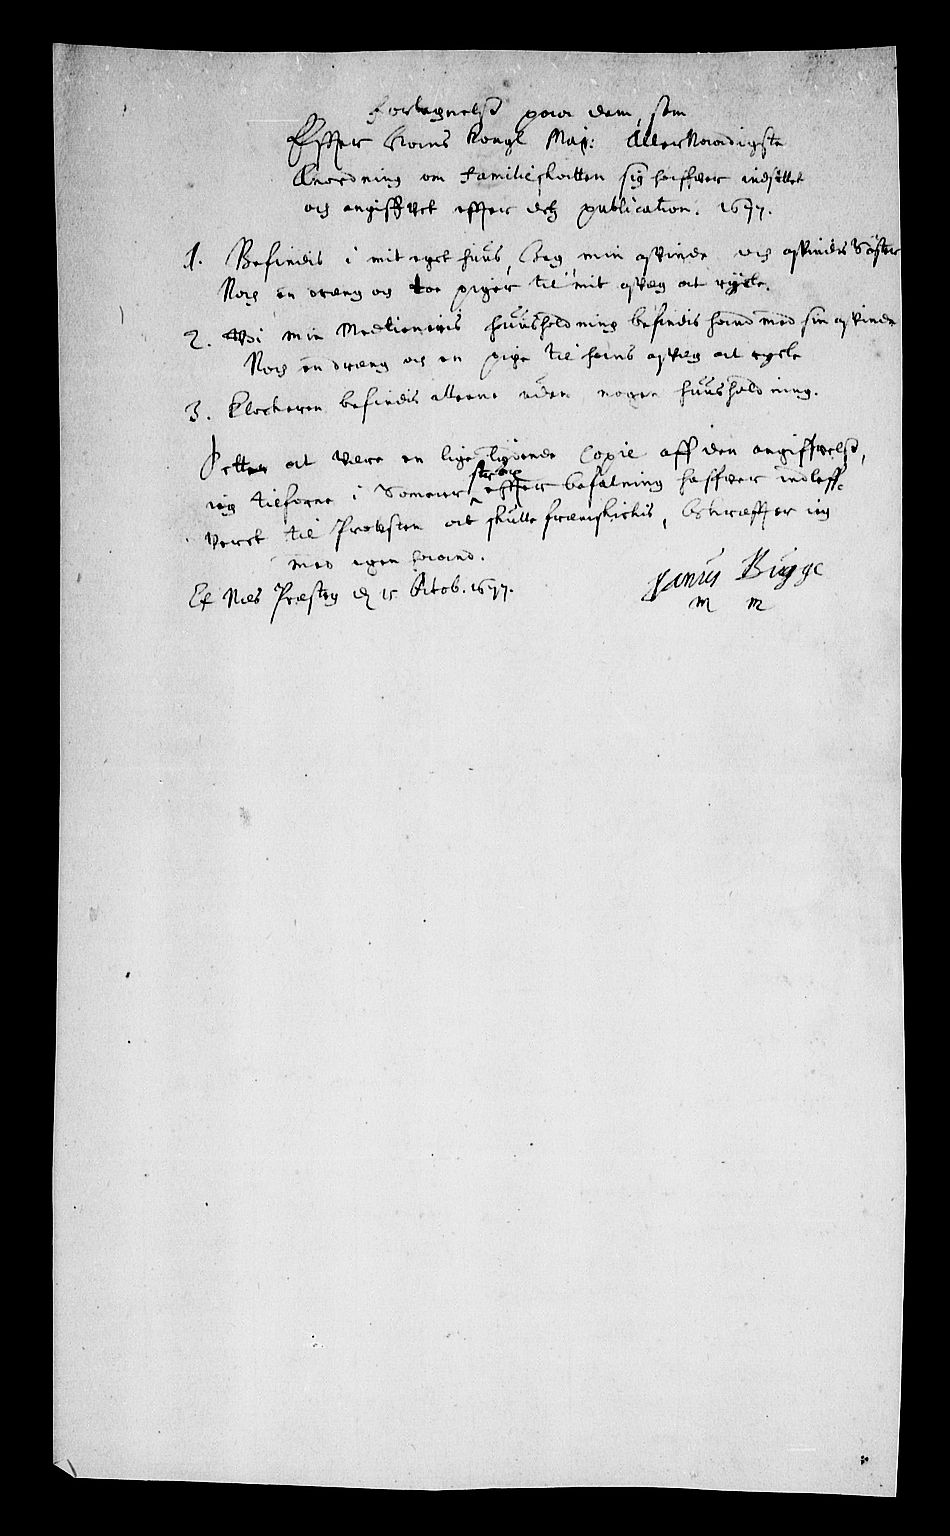 Fortegnelse paa dem, som
Effter Hans Kongl Maj: Allernaadigste
Anordning om Familieskatten sig haffver indstillet
och angiffvet effter dens publication. 1677.
1. Befindis i mit eget huus, Jeg min qvinde och qvindis Søster
Noch en dreng og toe piger til mit qveg at rychte.
2. Udi min Medtieneris huusholdning befindis hand med sin qvinde
Noch en dreng och en pige til hans qveg at rychte
3. Klockeren befindis alleene uden nogen huusholdning.
Dette at være en lige lydende Copie aff den angiffvelse,
ieg tilforne i Sommer strax effter befalning haffver indleff-
veret til Probsten at skulle fremskickis, bekræffter ieg
med egen haand.
Ex Næs Præsteg d 15 Octob. 1677.
Janus Bugge
m m